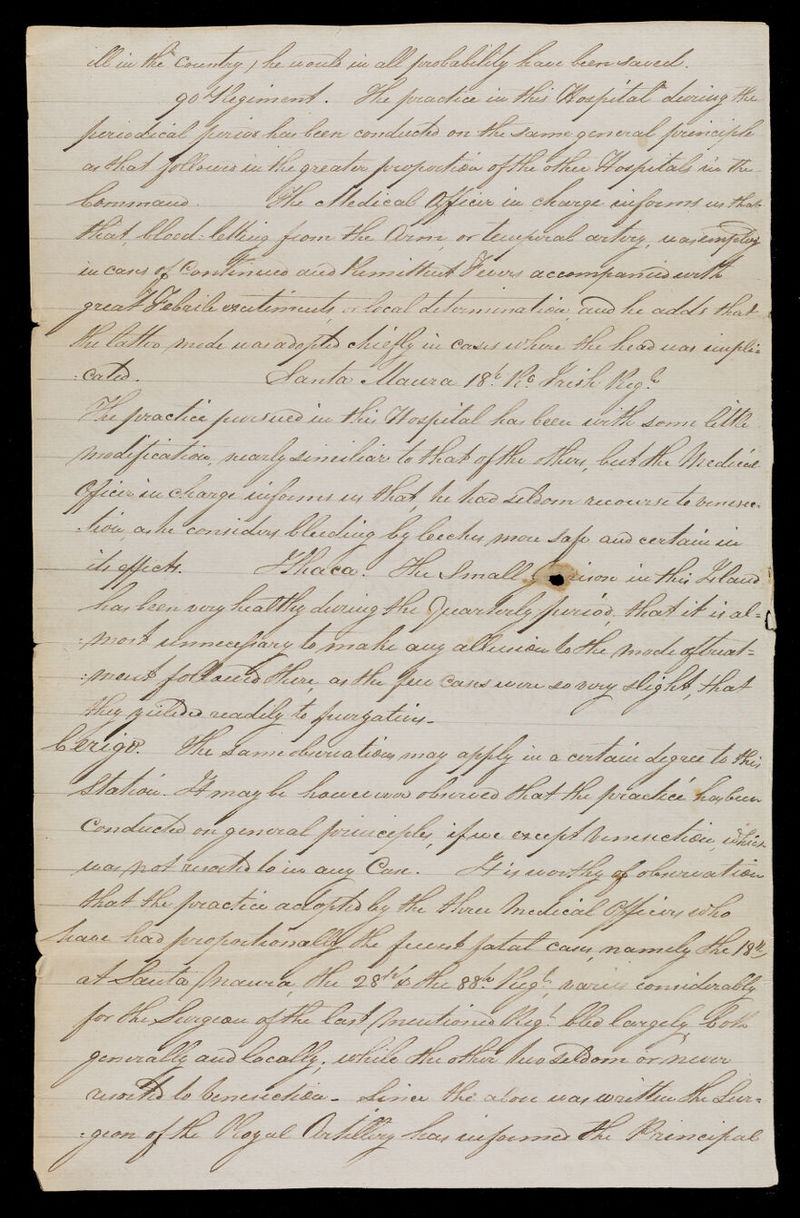 ill in the Country, he would in all probability have been saved.
90th Regiment. The practice in this Hospital during the
periodical period has been conducted on the same general principle
as that followed in the greater proportion of the other Hospitals in the
Command. The Medical Officer in charge informs us that
that, blood-letting from the Arm, or temporal artery, was employed
in cases of Continued and Remittent Fevers accompanied with
great Febrile excitements, or local determination, and he adds that
the latter mode was adopted chiefly in cases where the head was impli=
:cated. Santa Maura 18th Rl. Irish Regt.
The practice pursued in this Hospital has been with some little
modification, nearly similiar to that of the others, but the Medical
Officer in charge informs us that, he had seldom recourse to venesec=
:tion, as he considers bleeding by leeches, more safe and certain in
its effects. Ithaca. The Small rison in this Island
has been very healthy during the Quarterly period, that it is al=
:most unnecessary to make any allusion to the mode of treat=
:ment followed there, as the few cases were so very slight, that
they yielded readily to purgatives_
Cerigo. The same observations may apply in a certain degree to this
Station. It may be however observed that the practice has been
Conducted on general principles, if we except Venesection, which
was not resorted to in any Case. It is worthy of observation
that the practice adopted by the three Medical Officers who
have had proportionally the fewest fatal cases, namely the 18th
at Santa Maura, the 28th & the 88th Regt., varies considerably
for the Surgeon of the last mentioned Regt. bled largely, both
generally and locally, while the other two seldom or never
resorted to Venesection_ Since the above was written the Sur=
:geon of the Royal Artillery has informed the Principal